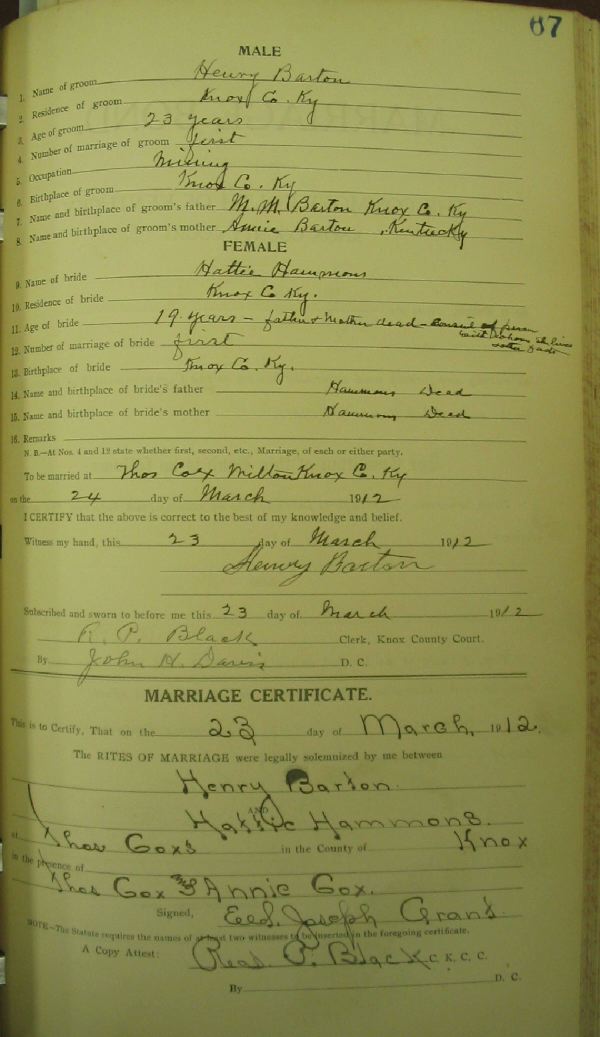 67
MALE
1. Name of groom Henry Barton
2. Residence of groom Knox Co. Ky
3. Age of groom 23 years
4. Number of marriage of groom first
5. Occupation Mining
6. Birthplace of groom Knox Co. Ky
7. Name and birthplace of groom's father M. M. Barton Knox Co. Ky
8. Name and birthplace of groom's mother Annie Barton, Kentucky
FEMALE
9. Name of bride Hattie Hammons
10. Residence of bride Knox Co Ky.
11. Age of bride 19 years - father & Mother dead - consent of person
with whom she lives
12. Number of marriage of bride first
13. Birthplace of bride Knox Co. Ky.
14. Name and birthplace of bride's father Hammons Dead
15. Name and birthplace of bride's mother Hammons Dead
16. Remarks
N. B.—At Nos. 4 and 12 state whether first, second, etc., Marriage, of each or either party.
To be married at Thos Cox Milton Knox Co. Ky
on the 24 day of March 1912
I CERTIFY that the above is correct to the best of my knowledge and belief.
Witness my hand, this 23 day of March 1912
Henry Barton
Subscribed and sworn to before me this 23 day of March 1912
R. P. Black Clerk, Knox County Court.
By John H. Davis D. C.
MARRIAGE CERTIFICATE.
This is to Certify, That on the 23 day of March, 1912.
The RITES OF MARRIAGE were legally solemnized by me between
Henry Barton.
AND
Hattie Hammons.
at Thos Coxs in the County of Knox
in the presence of
Thos Cox and Annie Cox.
Signed, Eld. Joseph Grant
NOTE—The Statute requires the names of at least two witnesses to be inserted in the foregoing certificate.
A Copy Attest: Read P. Black C. K. C. C.
By D. C.